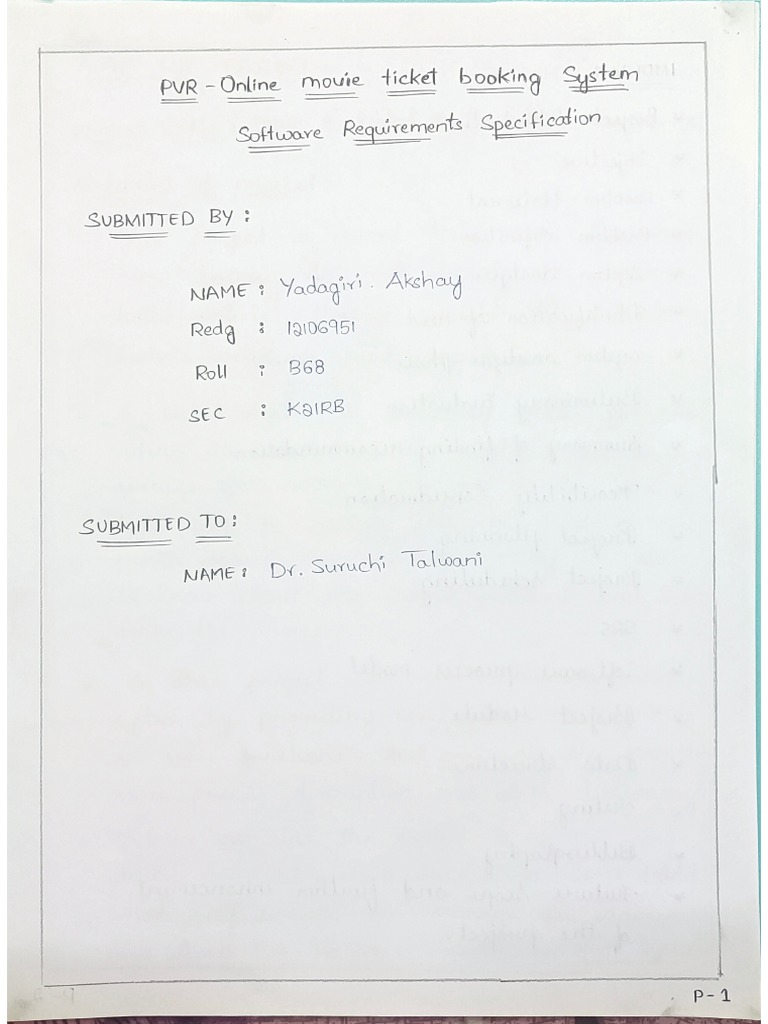 PVR - Online movie ticket booking System
Software Requirements Specification
SUBMITTED BY :
NAME : Yadagiri. Akshay
Redg : 12106951
Roll : B68
SEC : K21RB
SUBMITTED TO :
NAME : Dr. Suruchi Talwani
P-1